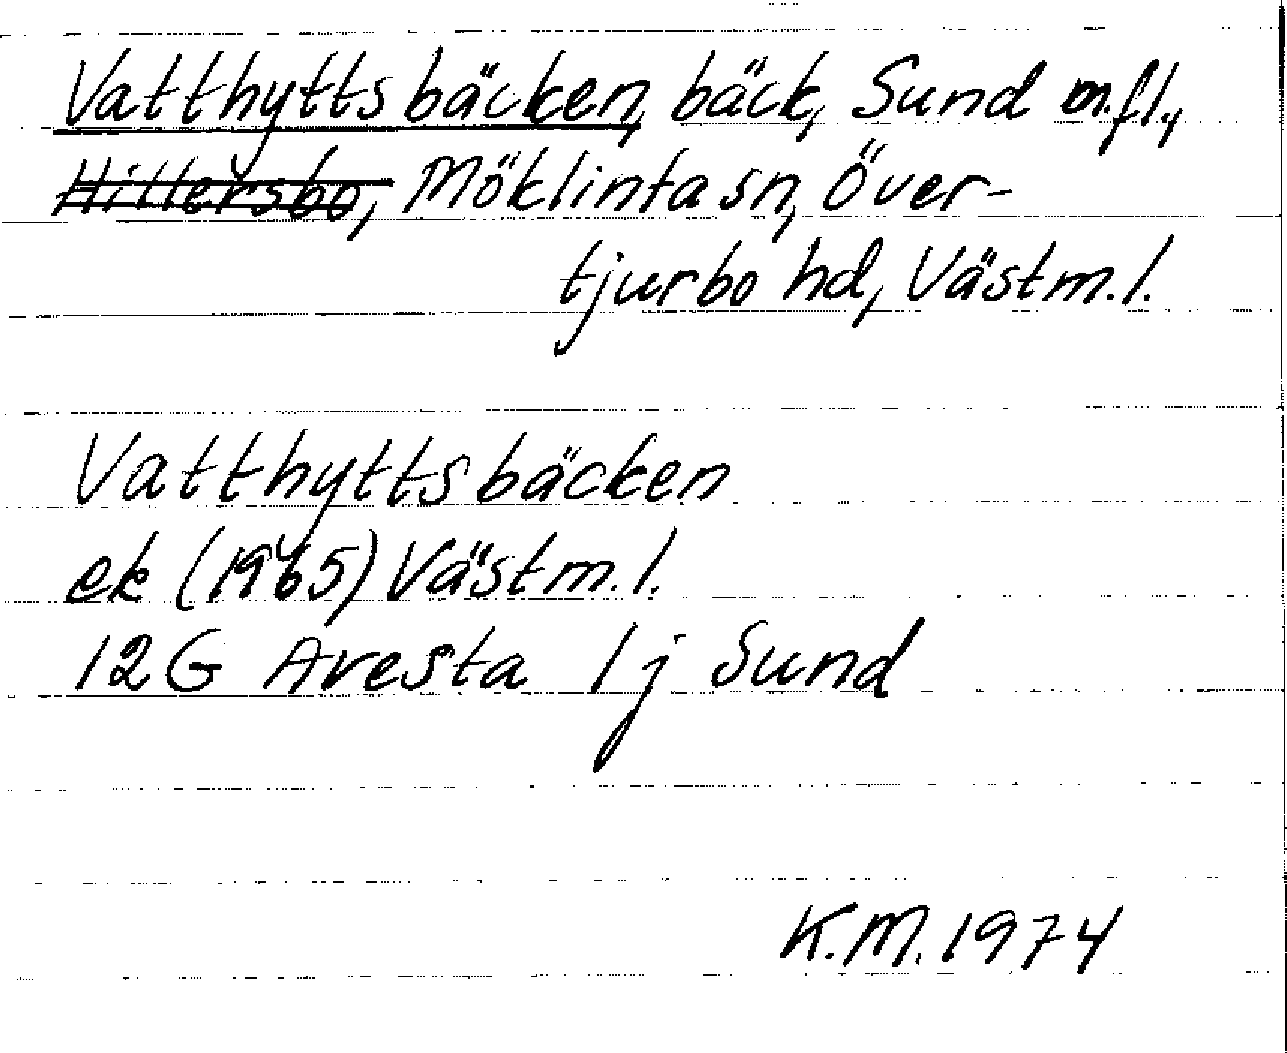 Vatthyttsbäcken, bäck, Sund m.fl.,
Hillersbo, Möklinta sn, Över-
tjurbo hd, Västm. l.
Vatthyttsbäcken
ek (1965) Västm. l.
12 G Avesta 1j Sund
K.M. 1974